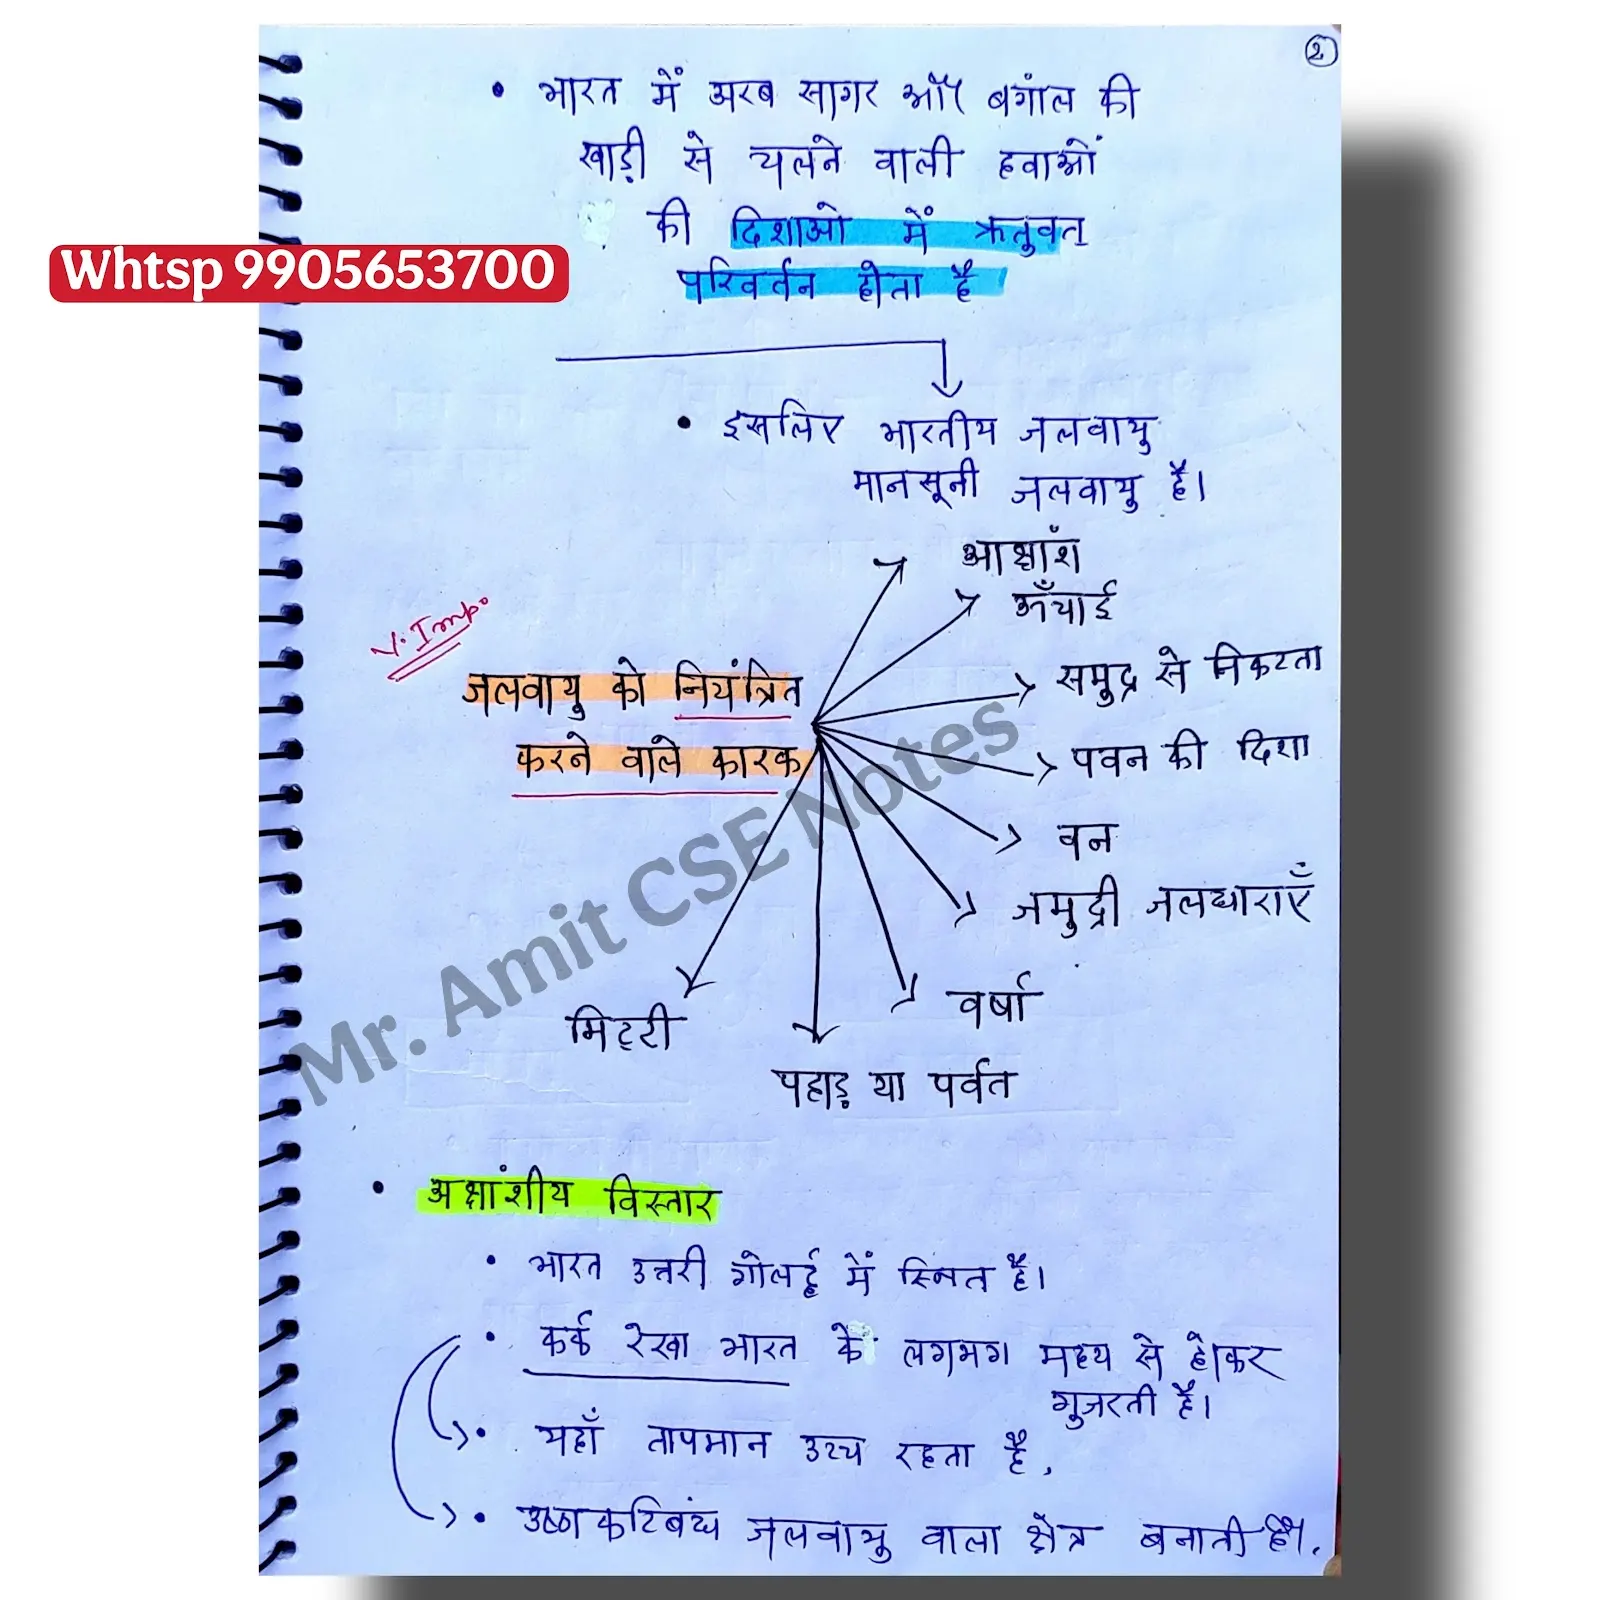 2
• भारत में अरब सागर और बगांल की
खाड़ी से चलने वाली हवाओं
की दिशाओ में ऋतुवत
परिवर्तन होता है
Whtsp 9905653700
• इसलिए भारतीय जलवायु
मानसूनी जलवायु है।
आक्षांश
ऊँचाई
V. Imp.
समुद्र से निकटता
जलवायु को नियंत्रित
करने वाले कारक
पवन की दिशा
वन
जमुद्री जलधाराएँ
वर्षा
मिट्टी
पहाड़ या पर्वत
Mr. Amit CSE Notes
• अक्षांशीय विस्तार
• भारत उत्तरी गोलर्द्ध में स्थित है।
• कर्क रेखा भारत के लगभग मध्य से होकर
गुजरती है।
• यहाँ तापमान उच्च रहता है,
• उष्णकटिबंध जलवायु वाला क्षेत्र बनाती है।